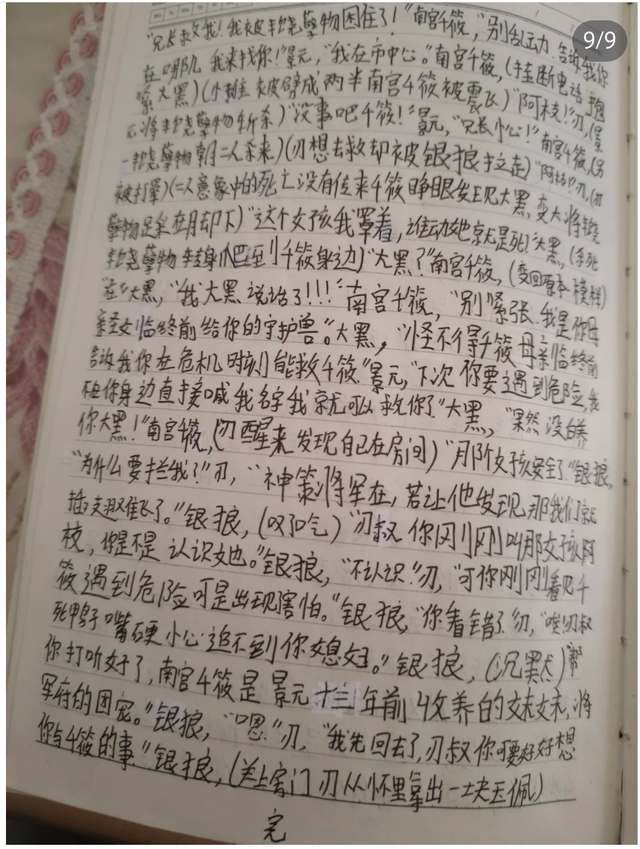 9/9
"兄长救我!我被丰饶孽物困住了!"南宫千筱,"别乱动 告诉我你
在哪儿 我来找你!"景元,"我在市中心。"南宫千筱,(挂断电话
紧大黑)(被劈成两半南宫千筱被震飞)"阿枝!"刃,(景
元将丰饶孽物斩杀)"没事吧千筱!"景元,"兄长小心!"南宫千筱,(另
一丰饶孽物朝二人杀来)(刃想去救却被银狼拉走)"阿枝"刃,(刃
被打晕)(二人意象中的死亡没有传来千筱睁眼发现大黑变大将丰饶
孽物踩在月却下)"这个女孩我罩着,谁动她就是死!"大黑,(杀死
丰饶孽物转身爬到千筱身边)"大黑?"南宫千筱,(变回原本模样)
"在"大黑,"我大黑说话了!!!"南宫千筱,"别紧张、我是你母
亲临终前给你的守护兽。"大黑,"怪不得千筱母亲临终前
告诉我你在危机时刻能救千筱"景元,"下次你要遇到危险,我
不在你身边直接喊我名字我就可以救你了"大黑,"果然没白养
你大黑!"南宫千筱,(刃醒来发现自己在房间)"那女孩安全了"银狼,
"为什么要拦我?"刃,"神策将军在,若让他发现那我们就
插翅难飞了。"银狼,(叹口气)"刃叔你刚刚叫那女孩阿
枝,你是不是认识她。"银狼,"不认识!"刃,"可你刚刚看见千
筱遇到危险可是出现害怕。"银狼,"你看错了"刃,"唉刃叔
死鸭子嘴硬小心追不到你媳妇。"银狼,(沉默)"帮
你打听好了,南宫千筱是景元十三年前收养的妹妹,将
军府的团宠。"银狼,"嗯"刃,"我先回去了,刃叔你可要好好想
你与千筱的事"银狼,(关上房门刃从怀里拿出一块玉佩)
完